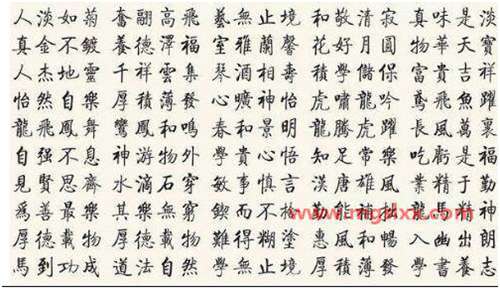 人淡如菊 奮翮高飛 藝無止境 和敬清寂 真味是淡
真金不鍍 養德澤福 室雅蘭馨 花好月圓 物華天寶
人杰地靈 千祥雲集 琴 相壽 學儲保 富貴吉祥
怡然自樂 厚積薄發 酒曠神怡 虎嘯龍吟 鳶飛魚躍
龍飛鳳舞 鸞鳳和鳴 春和景明 龍騰虎躍 長風萬裏
自强不息 神游物外 學貴心悟 知足常樂 吃虧是福
見賢思齊 水滴石穿 敏事慎言 漢唐雄風 業精于勤
為善最樂 其樂無窮 鍥而不 能神 龍馬精神
厚德載物 厚德載物 難得糊塗 惠風和暢 入幽出朗
馬到功成 道法自然 學無止境 厚積薄發 學書養志